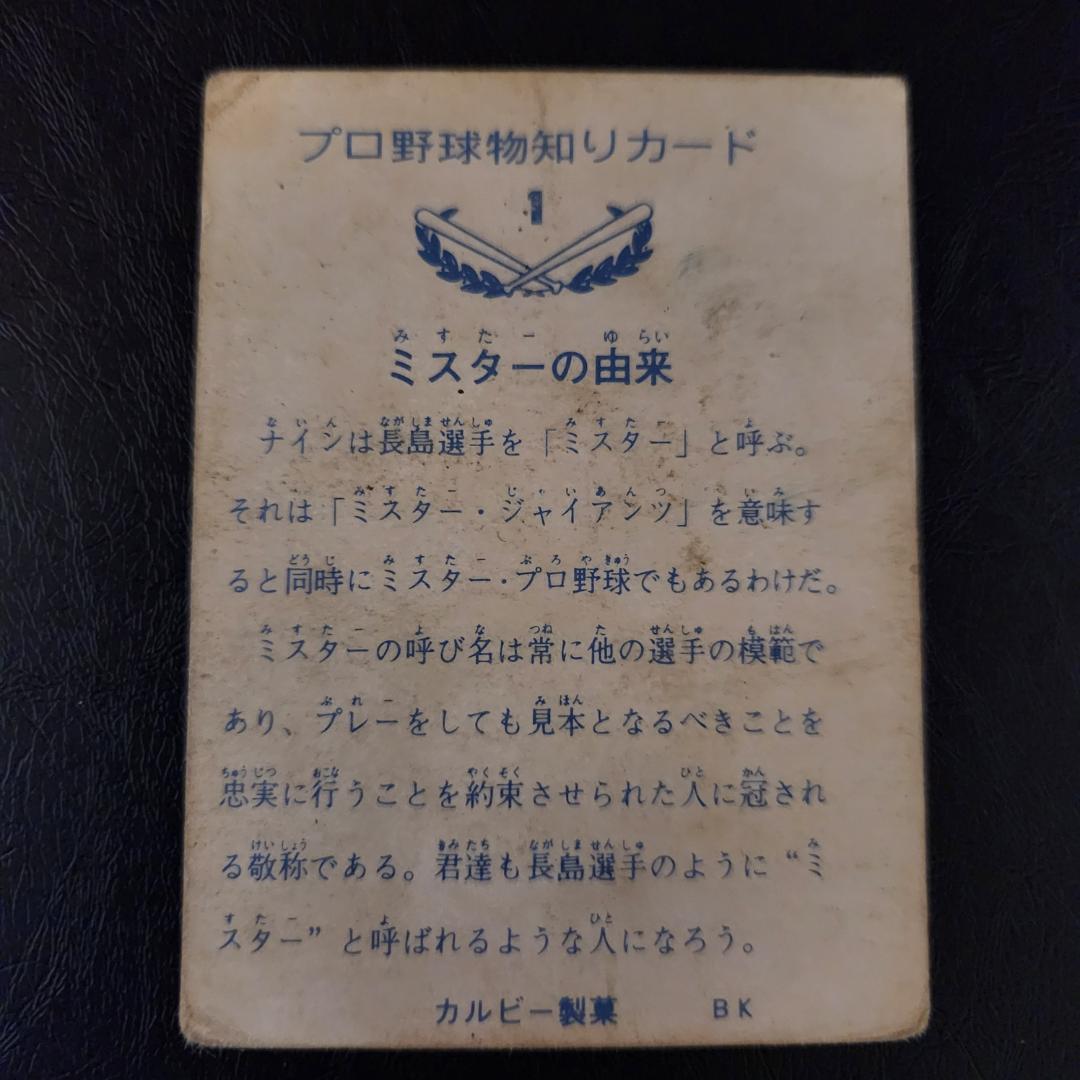 プロ野球物知りカード
1
ミスターの由来
ナインは長島選手を「ミスター」と呼ぶ。
それは「ミスター・ジャイアンツ」を意味す
ると同時にミスター・プロ野球でもあるわけだ。
ミスターの呼び名は常に他の選手の模範で
あり、プレーをしても見本となるべきことを
忠実に行うことを約束させられた人に冠され
る敬称である。君達も長島選手のように“ミ
スター”と呼ばれるような人になろう。
カルビー製菓 BK